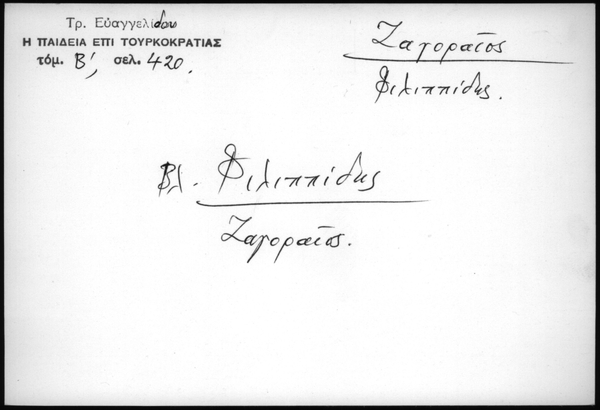 Τρ. Εὐαγγελίδου
Η ΠΑΙΔΕΙΑ ΕΠΙ ΤΟΥΡΚΟΚΡΑΤΙΑΣ
τόμ. Β', σελ. 420.
Ζαγοραῖος
Φιλιππίδης.
Βλ. Φιλιππίδης
Ζαγοραῖος.